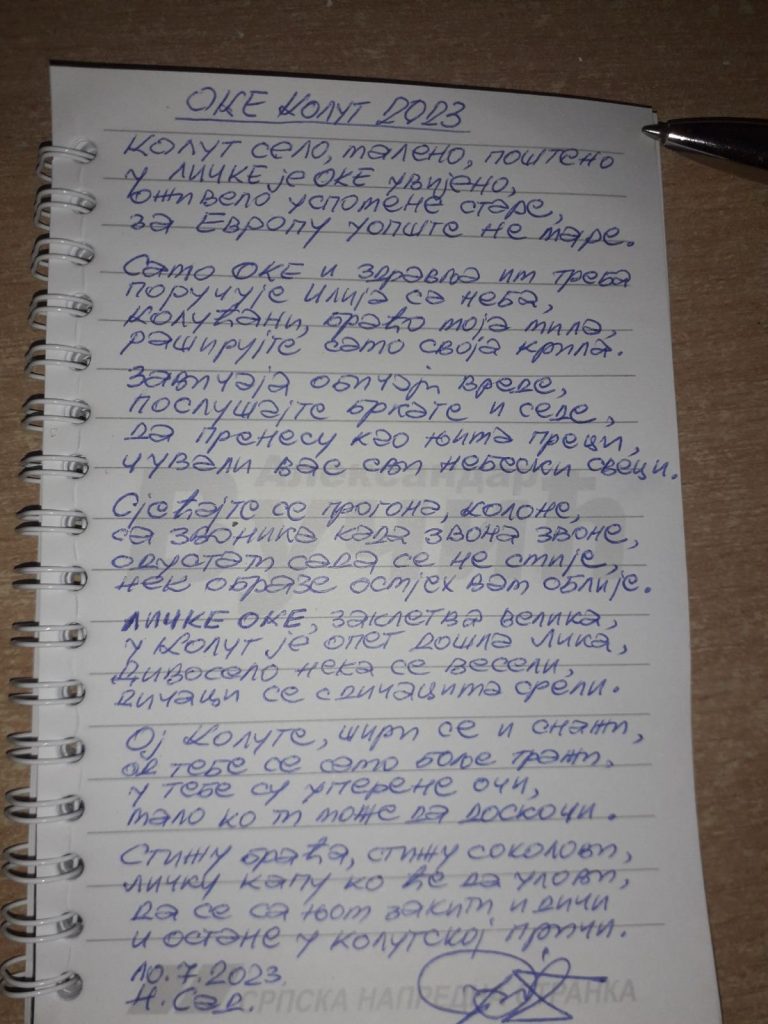 ОКЕ КОЛУТ 2023
Колут село, малено, поштено
у ЛИЧКЕ је ОКЕ увијено,
оживело успомене старе,
за Европу уопште не маре.
Само ОКЕ и здравља им треба
поручује Илија са неба,
Колућани, браћо моја мила,
раширујте само своја крила.
Завичаја обичаји вреде,
послушајте бркате и седе,
да пренесу као њима преци,
чували вас сви небески свеци.
Сјећајте се прогона, колоне,
са звоника када звона звоне,
одустат сада се не смије,
нек образе осмјех вам облије.
ЛИЧКЕ ОКЕ, заклетва велика,
у Колут је опет дошла Лика,
Дивосело нека се весели,
дичаци се с дичацима срели.
Ој Колуте, шири се и снажи,
од тебе се само боље тражи,
у тебе су уперене очи,
мало ко ти може да доскочи.
Стижу браћа, стижу соколови,
личку капу ко ће да улови,
да се са њом закити и дичи
и остане у колутској причи.
10.7.2023
Н. Сад.
Александар
Вучић
СРПСКА НАПРЕДНА СТРАНКА